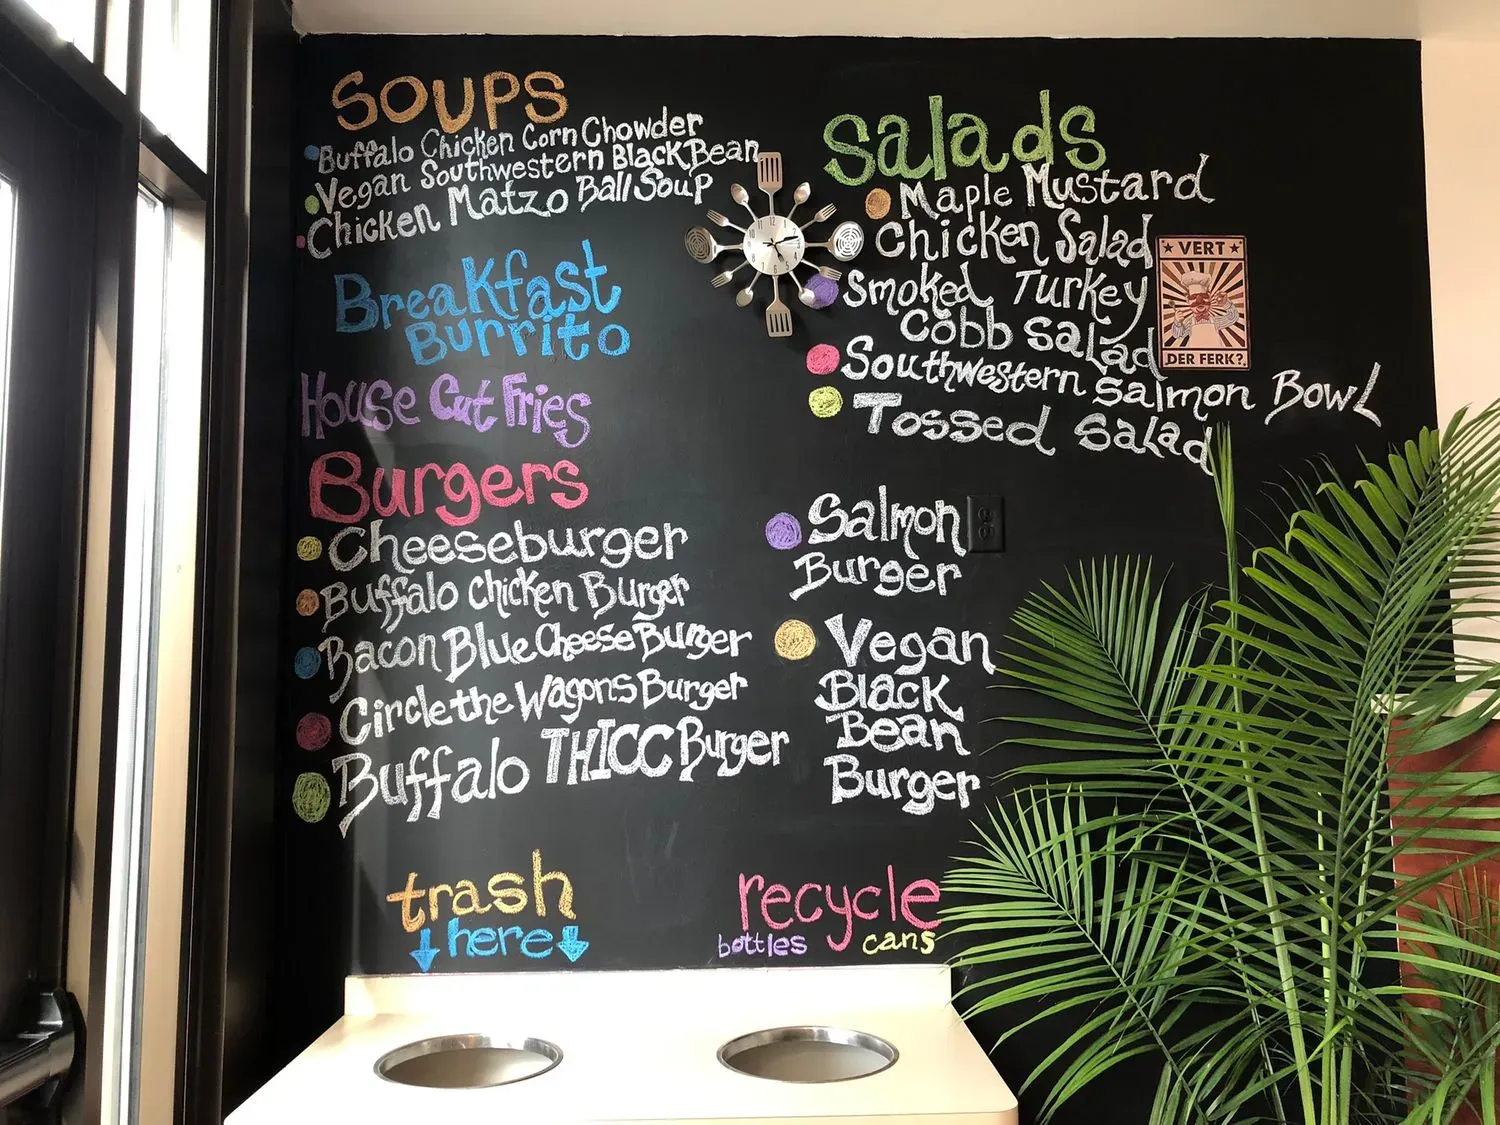 SOUPS
Buffalo Chicken Corn Chowder
Vegan Southwestern Black Bean
Chicken Matzo Ball Soup
Breakfast
Burrito
House Cut Fries
Burgers
Cheeseburger
Buffalo Chicken Burger
Bacon Blue Cheese Burger
Circle the Wagons Burger
Buffalo THICC Burger
Salads
Maple Mustard
Chicken Salad
Smoked Turkey
Cobb Salad
Southwestern Salmon Bowl
Tossed Salad
VERT
DER FERK?
Salmon
Burger
Vegan
Black
Bean
Burger
trash
here
recycle
bottles cans